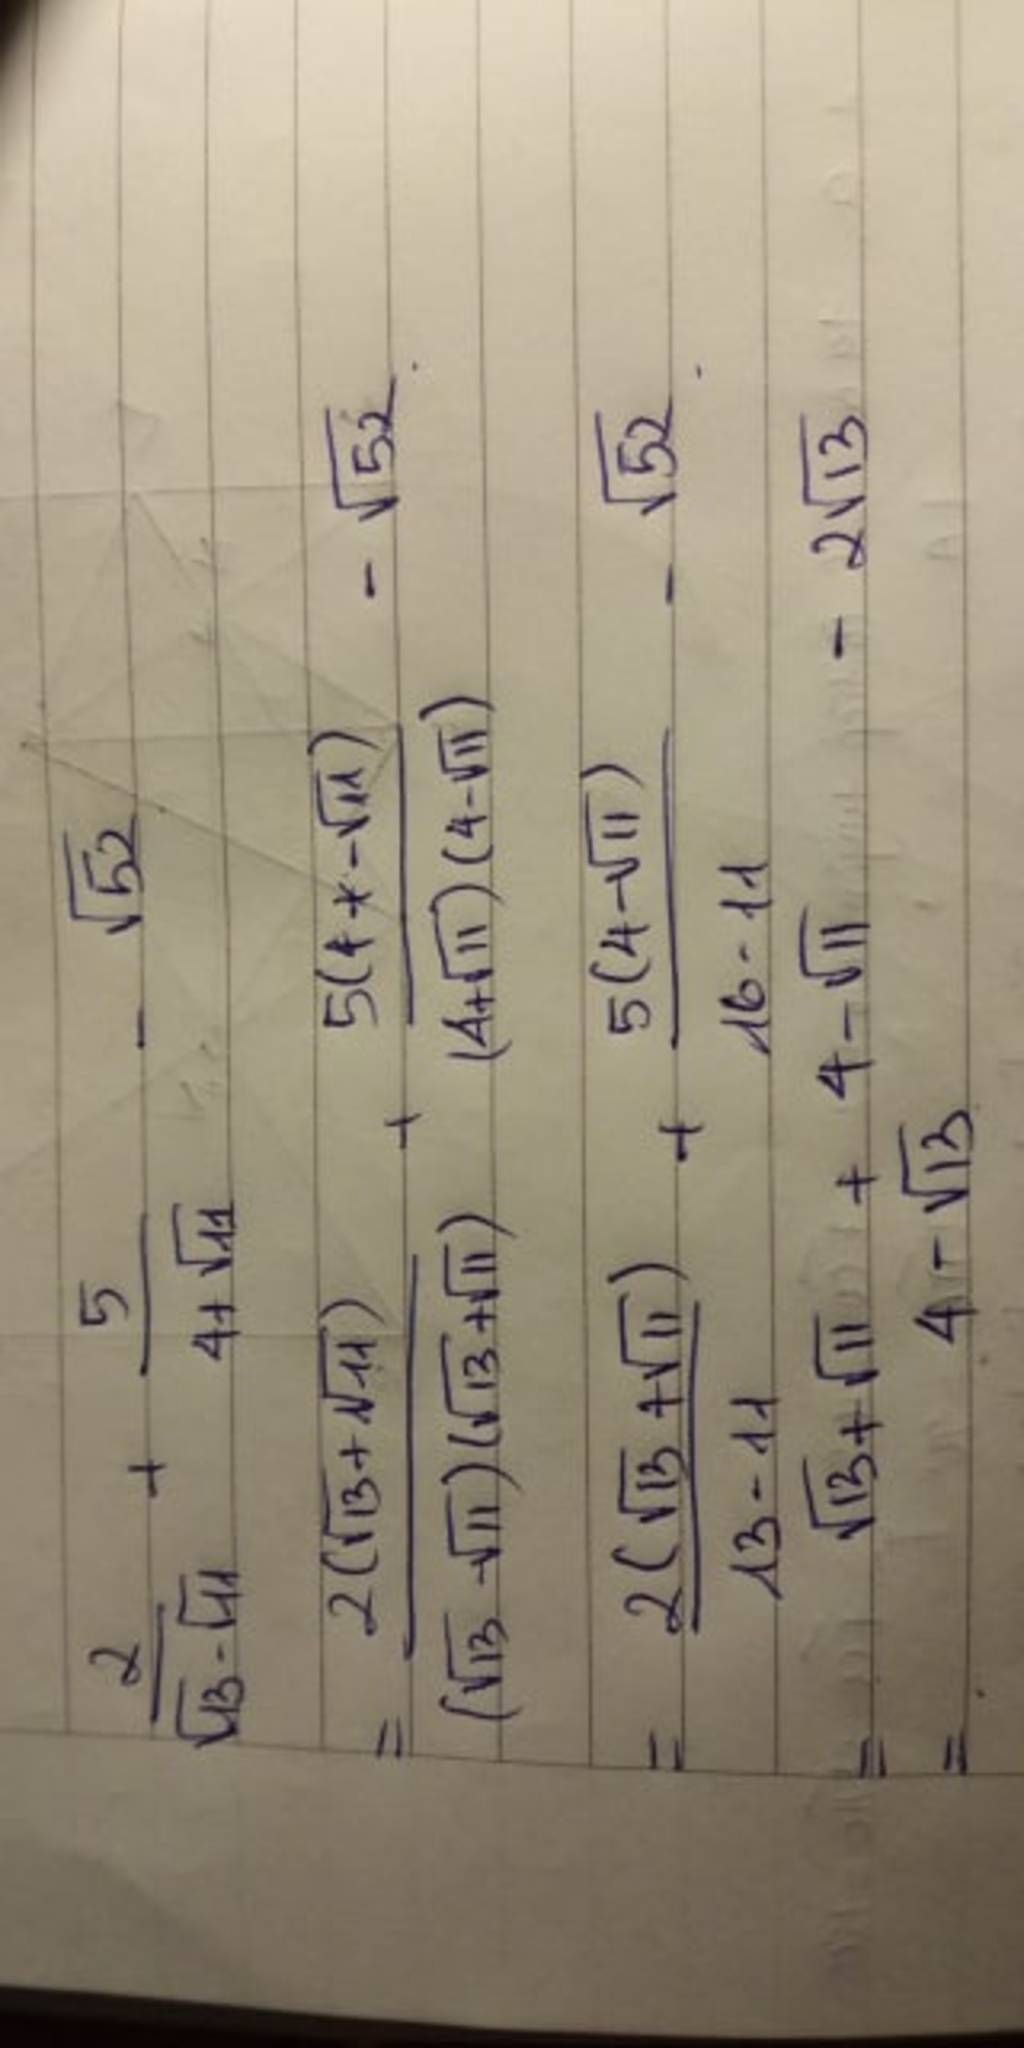 2/(√13-√11) + 5/(4+√11) - √52
= 2(√13+√11)/((√13-√11)(√13+√11)) + 5(4-√11)/((4+√11)(4-√11)) - √52
= 2(√13+√11)/(13-11) + 5(4-√11)/(16-11) - √52
= √13+√11 + 4-√11 - 2√13
= 4-√13